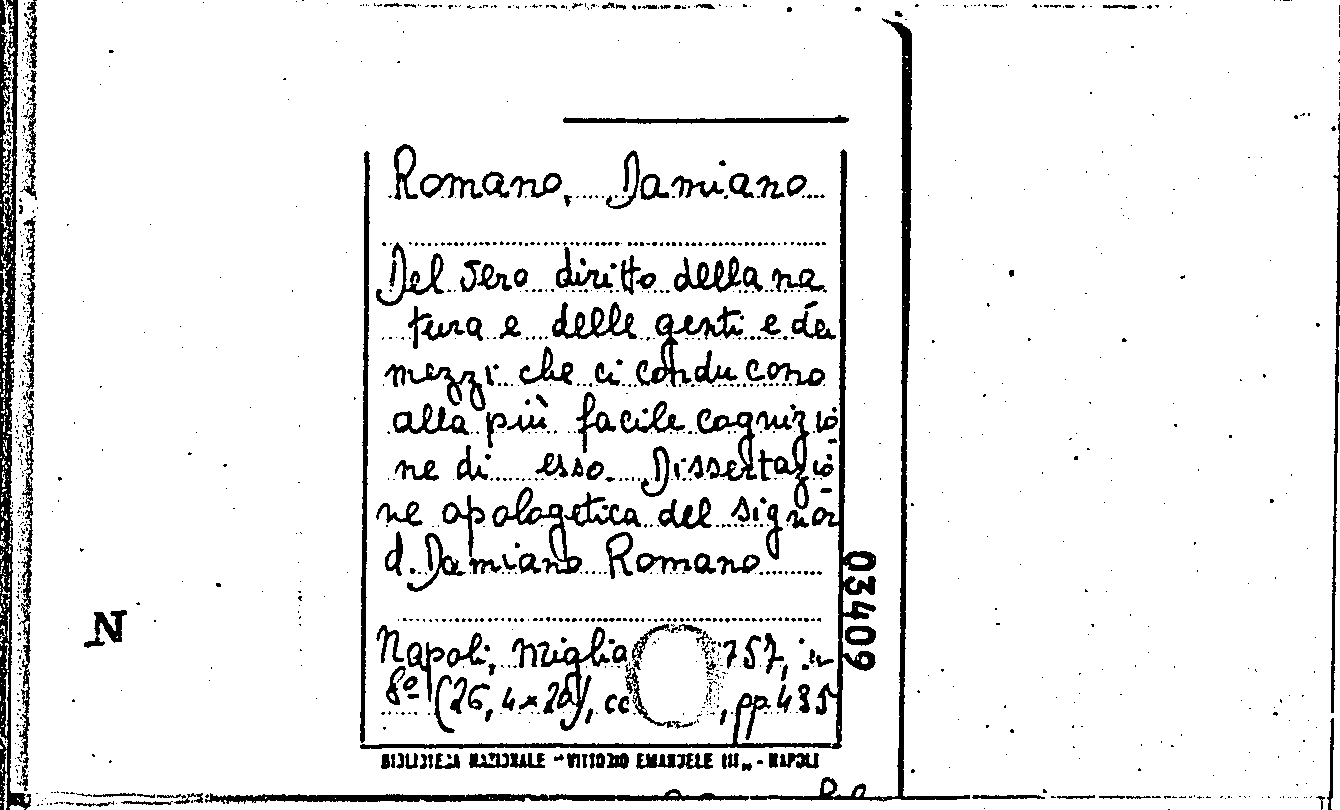 Romano, Damiano
Del vero diritto della na
tura e delle genti e dei
mezzi che ci conducono
alla più facile cognizio
ne di esso. Dissertazio
ne apologetica del signor
d. Damiano Romano
Napoli, Miglia 757, in
8º (26,4×20), cc , pp 435
BIBLIOTECA NAZIONALE "VITTORIO EMANUELE III" - NAPOLI
03409
N